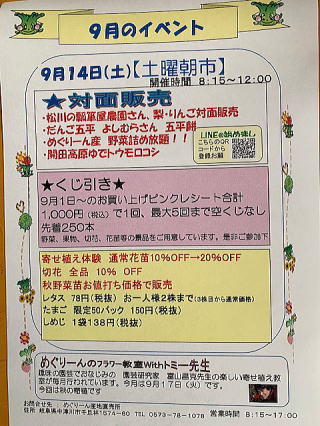 9月のイベント
9月14日(土)【土曜朝市】
開催時間 8:15～12:00
★対面販売
・松川の瓢箪屋農園さん、梨・りんご対面販売
・だんご五平 よしむらさん 五平餅
・めぐりーん産 野菜詰め放題!!
・開田高原ゆでトウモロコシ
LINE@始めました
こちらのQR
コードから
登録お願
★くじ引き★
9月1日～のお買い上げピンクレシート合計
1,000円(税込)で1回、最大5回まで空くじなし
先着250本
野菜、果物、切花、花苗等の景品をご用意しています。是非ご参加下
寄せ植え体験 通常花苗10%OFF→20%OFF
切花 全品 10% OFF
秋野菜苗お値打ち価格で販売
レタス 78円(税抜) お一人様2株まで(3株目から通常価格)
たまご 限定50パック 150円(税抜)
しめじ 1袋138円(税抜)
めぐりーんのフラワー教室Withトミー先生
趣味の園芸でおなじみの 園芸研究家 富山昌克先生の楽しい寄せ植え教
室が毎月行われています。今月は9月17日(火)です。
今回は秋の寄植です
お問合せ先:めぐりーん産地直売所
住所 岐阜県中津川市千旦林1574-60 TEL 0573-78-1078 営業時間 8:15～17:00